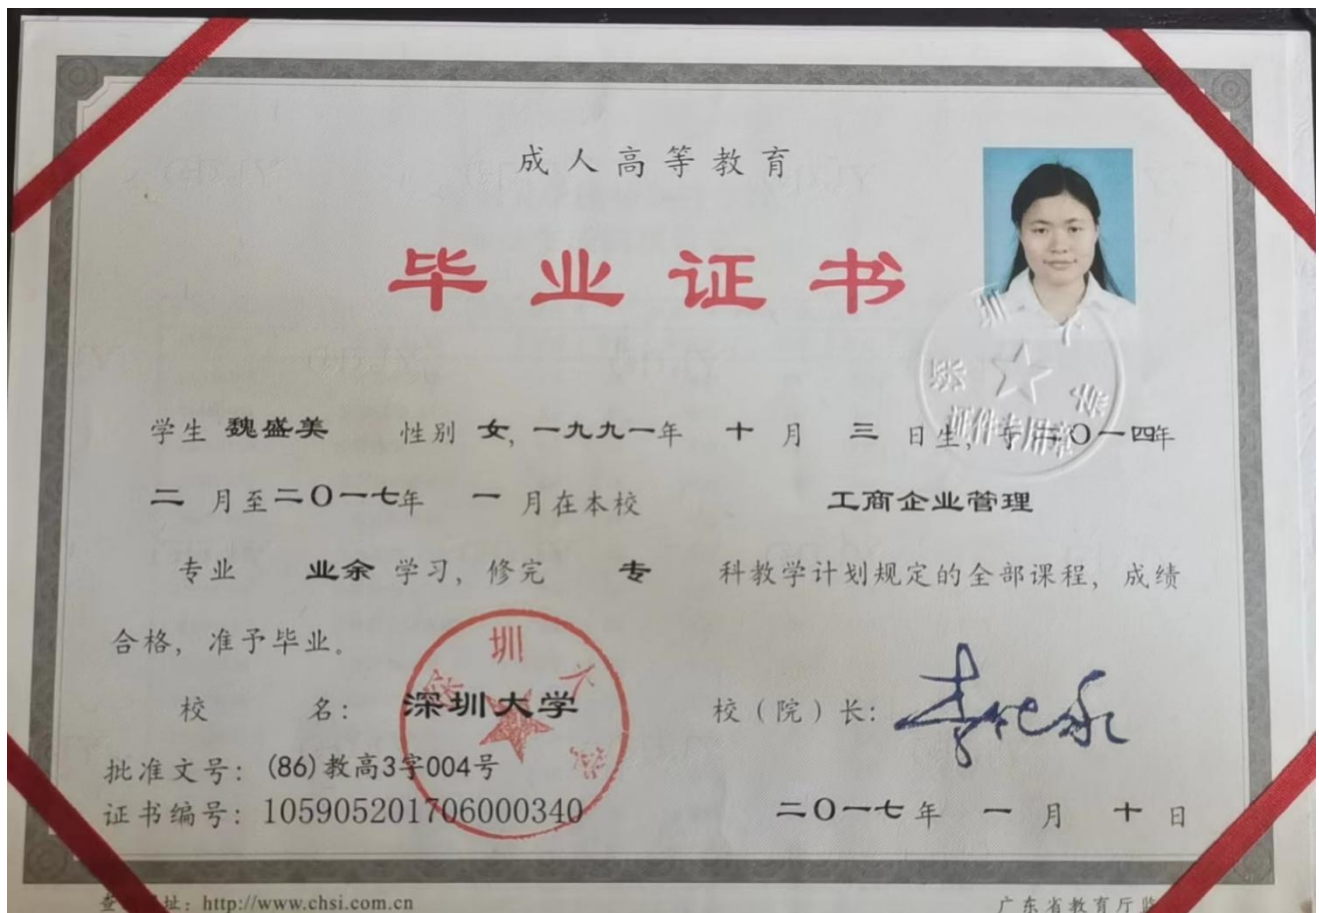 成人高等教育
毕业证书
学生 魏盛美 性别 女，一九九一年 十 月 三 日生，于二〇一四年
二 月至二〇一七年 一 月在本校 工商企业管理
专业 业余 学习，修完 专 科教学计划规定的全部课程，成绩
合格，准予毕业。
校 名：深圳大学
校（院）长：
批准文号：(86)教高3字004号
证书编号：105905201706000340
二〇一七年 一 月 十 日
证件专用章
http://www.chsi.com.cn
广东省教育厅